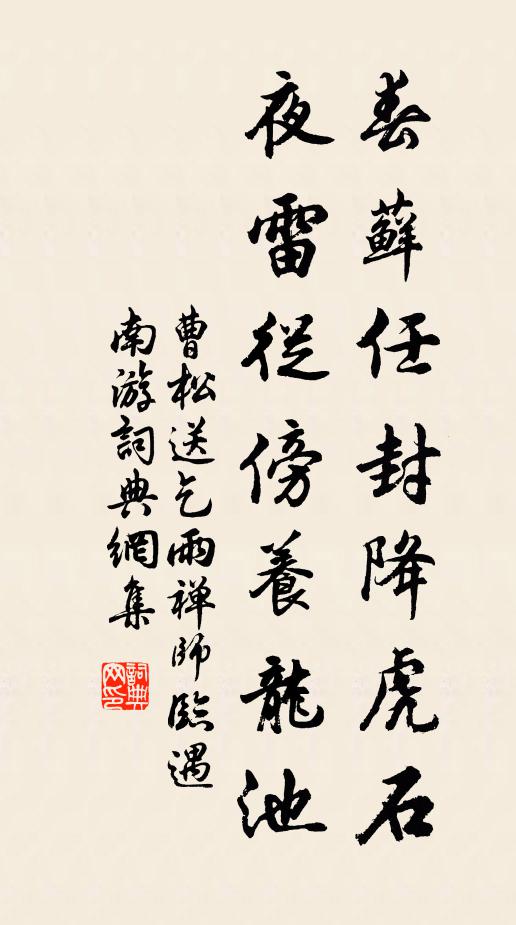 春蘚任封降虎石
夜雷從傍養龍池
曹松送乞雨禅師臨遇
南游詞典網集
詞典
网印